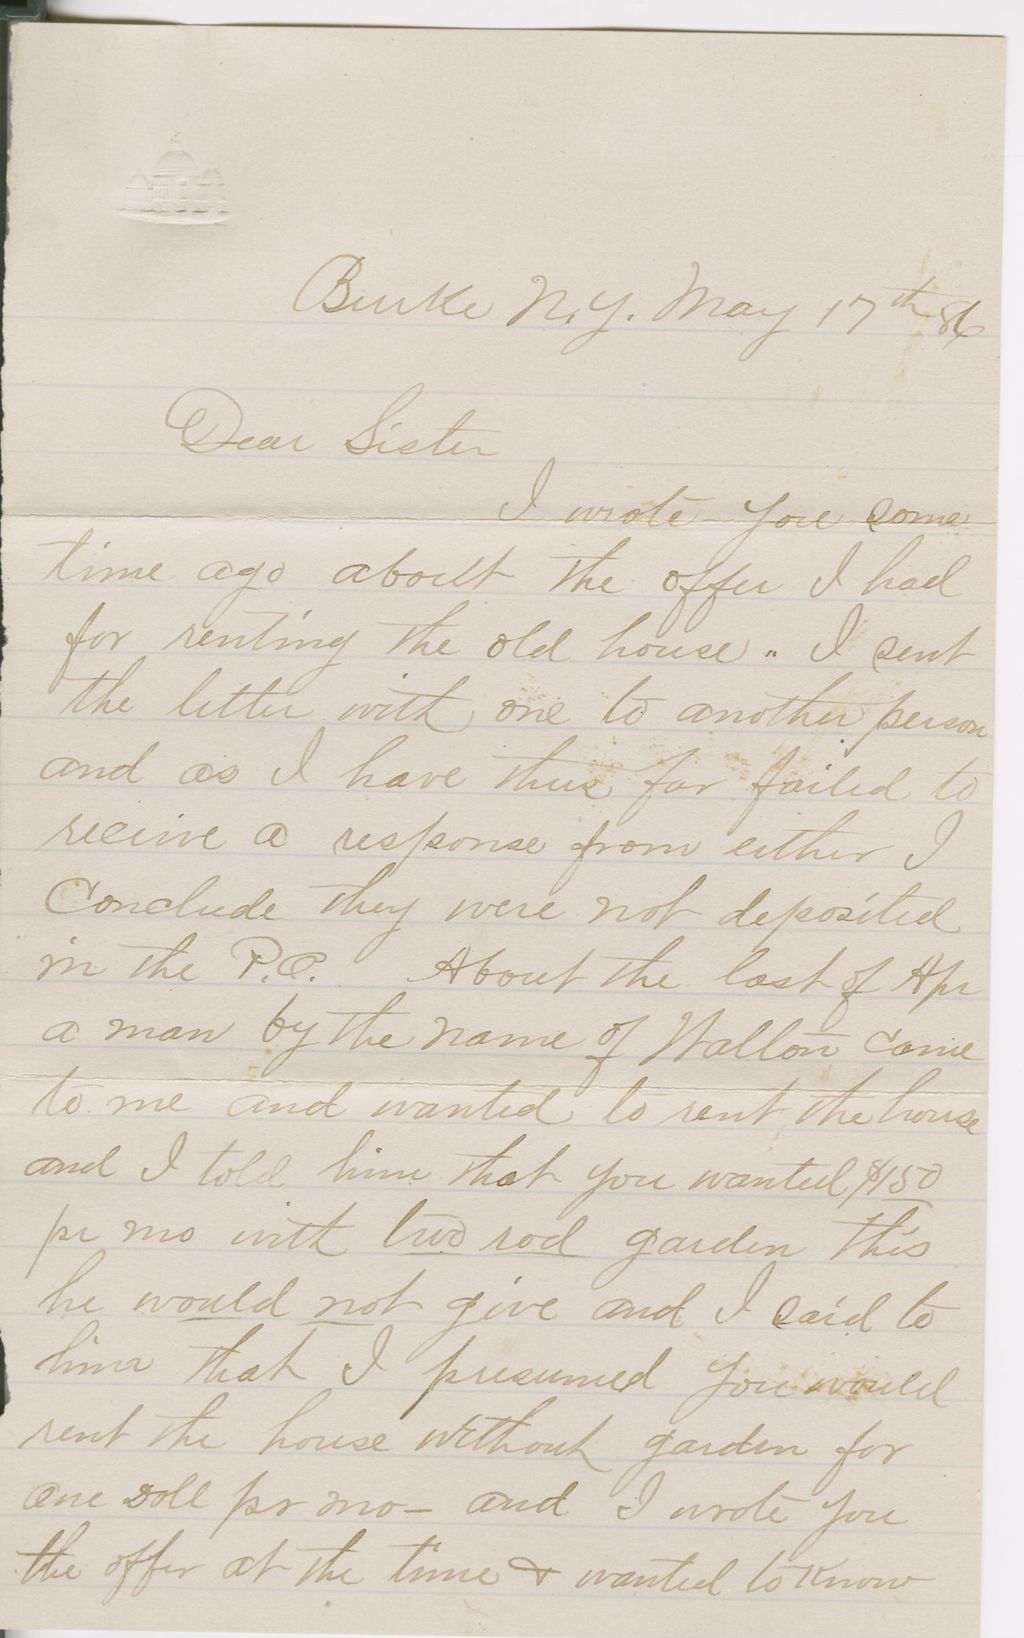 Burke N.Y. May 17th 86
Dear Sister
I wrote you some
time ago about the offer I had
for renting the old house.. I sent
the letter with one to another person
and as I have thus far failed to
receive a response from either I
Conclude they were not deposited
in the P.O. About the last of Apr
a man by the name of Wallon came
to me and wanted to rent the house
and I told him that you wanted $150
pr mo with two rod garden this
he would not give and I said to
him that I presumed you would
rent the house without garden for
one doll pr mo— and I wrote you
the offer at the time & wanted to know